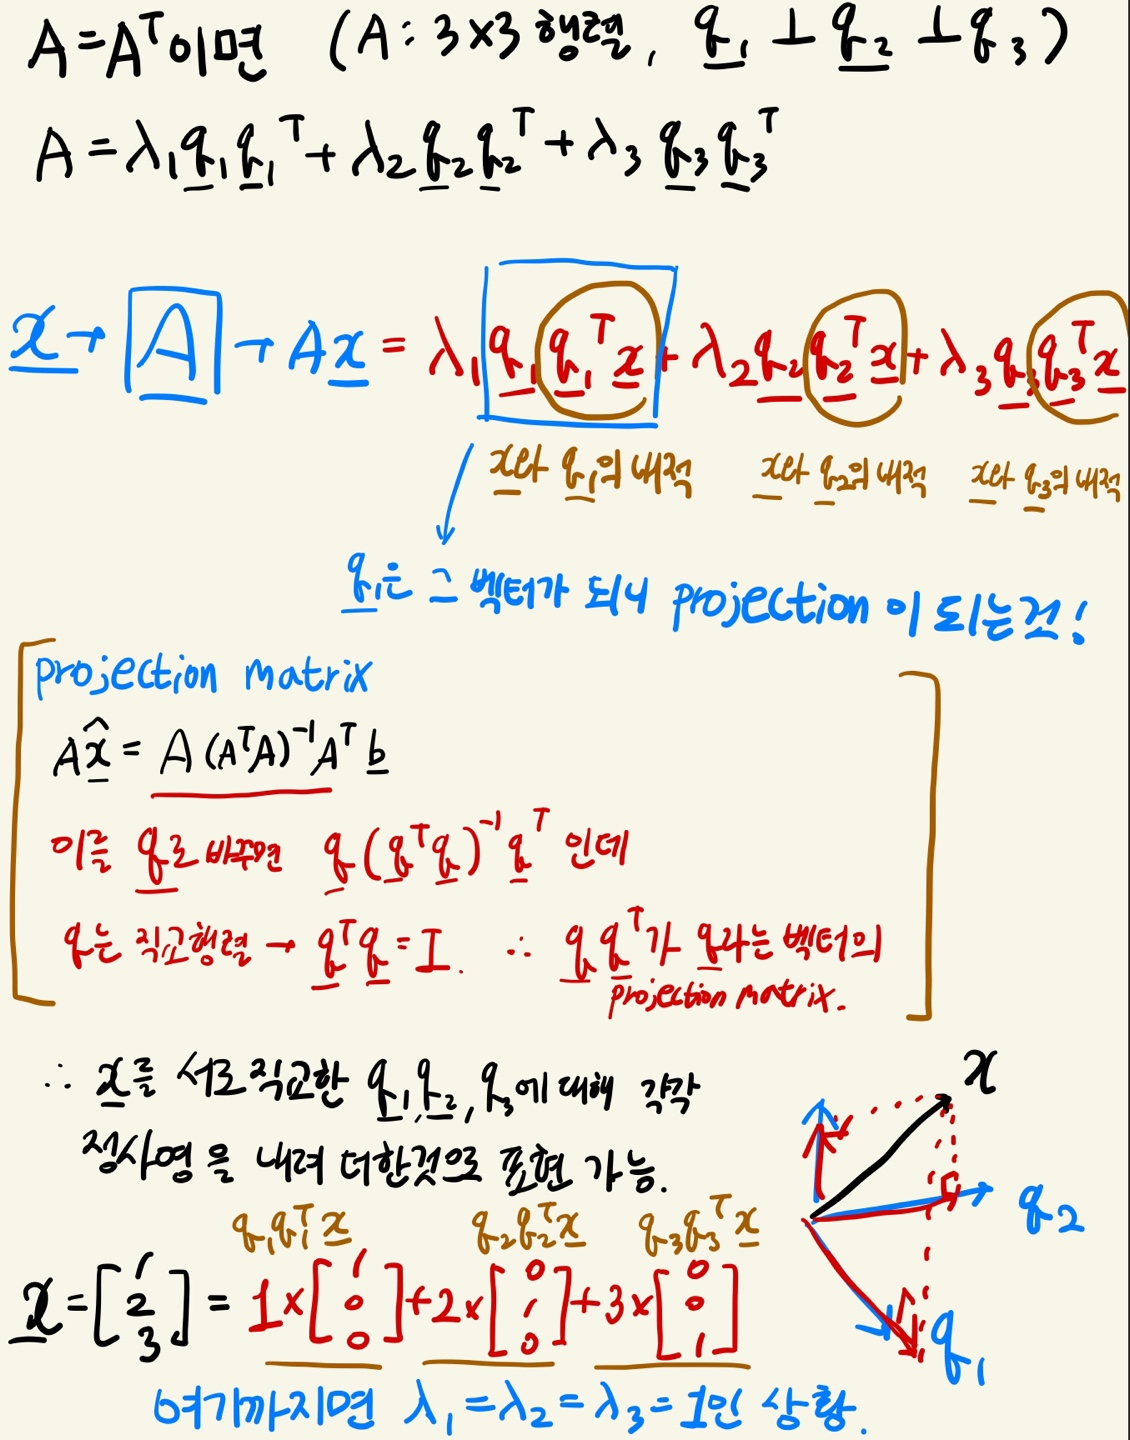 A=Aᵀ이면 (A: 3×3 행렬, q₁ ⊥ q₂ ⊥ q₃)
A = λ₁q₁q₁ᵀ + λ₂q₂q₂ᵀ + λ₃q₃q₃ᵀ
x → A → Ax = λ₁q₁q₁ᵀx + λ₂q₂q₂ᵀx + λ₃q₃q₃ᵀx
x와 q₁의 내적 x와 q₂의 내적 x와 q₃의 내적
q₁은 그 벡터가 되니 projection이 되는것!
projection matrix
Ax̂ = A(AᵀA)⁻¹Aᵀb
이를 q로 바꾸면 q(qᵀq)⁻¹qᵀ 인데
q는 직교행렬 → qᵀq = I. ∴ qqᵀ가 q라는 벡터의
projection matrix.
∴ x를 서로직교한 q₁, q₂, q₃에 대해 각각
정사영을 내려 더한것으로 표현 가능.
q₁q₁ᵀx q₂q₂ᵀx q₃q₃ᵀx
x = [1 2 3] = 1×[1 0 0] + 2×[0 1 0] + 3×[0 0 1]
여기까지면 λ₁=λ₂=λ₃=1인 상황.
x
q₂
q₁